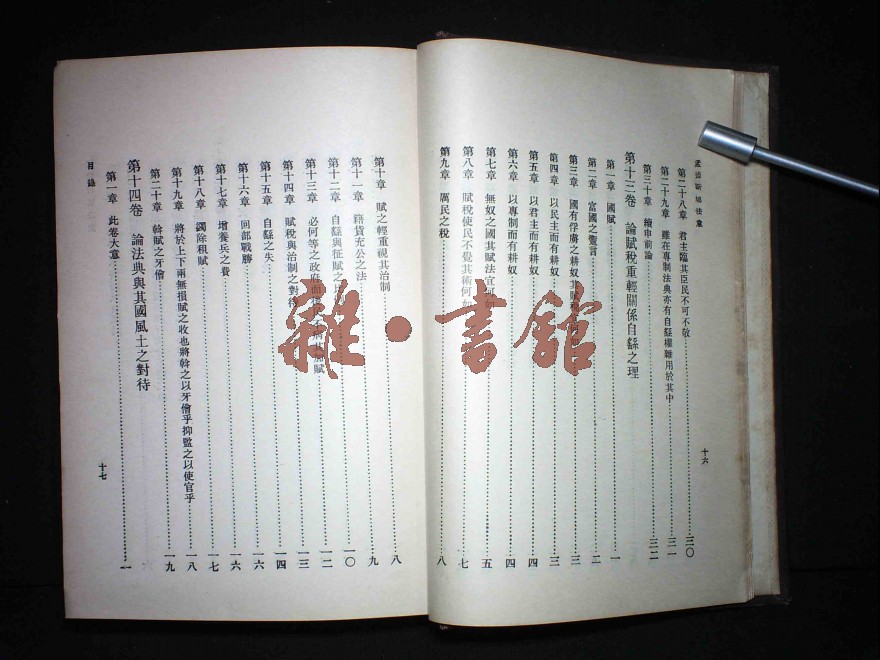 孟德斯鳩法意
第二十八章 君主臨其臣民不可不敬 三〇
第二十九章 雖在專制法典亦有自繇權雜用於其中 三一
第三十章 續申前論 三二
第十三卷 論賦稅重輕關係自繇之理
第一章 國賦 一
第二章 富國之讆言 二
第三章 國有俘虜之耕奴其賦 三
第四章 以民主而有耕奴 三
第五章 以君主而有耕奴 四
第六章 以專制而有耕奴 四
第七章 無奴之國其賦法宜 五
第八章 賦稅使民不覺其術何 七
第九章 厲民之稅 八
十六
第十章 賦之輕重視其治制 八
第十一章 籍貨充公之法 九
第十二章 自繇與征賦之 一〇
第十三章 必何等之政府而 賦 一二
第十四章 賦稅與治制之對待 一三
第十五章 自繇之失 一四
第十六章 回部戰勝 一六
第十七章 增養兵之費 一六
第十八章 蠲除租賦 一七
第十九章 將於上下兩無損賦之收也將斡之以牙儈乎抑監之以使官乎 一八
第二十章 斡賦之牙儈 一九
第十四卷 論法典與其國風土之對待
第一章 此卷大意 一
目錄
十七
雜·書館